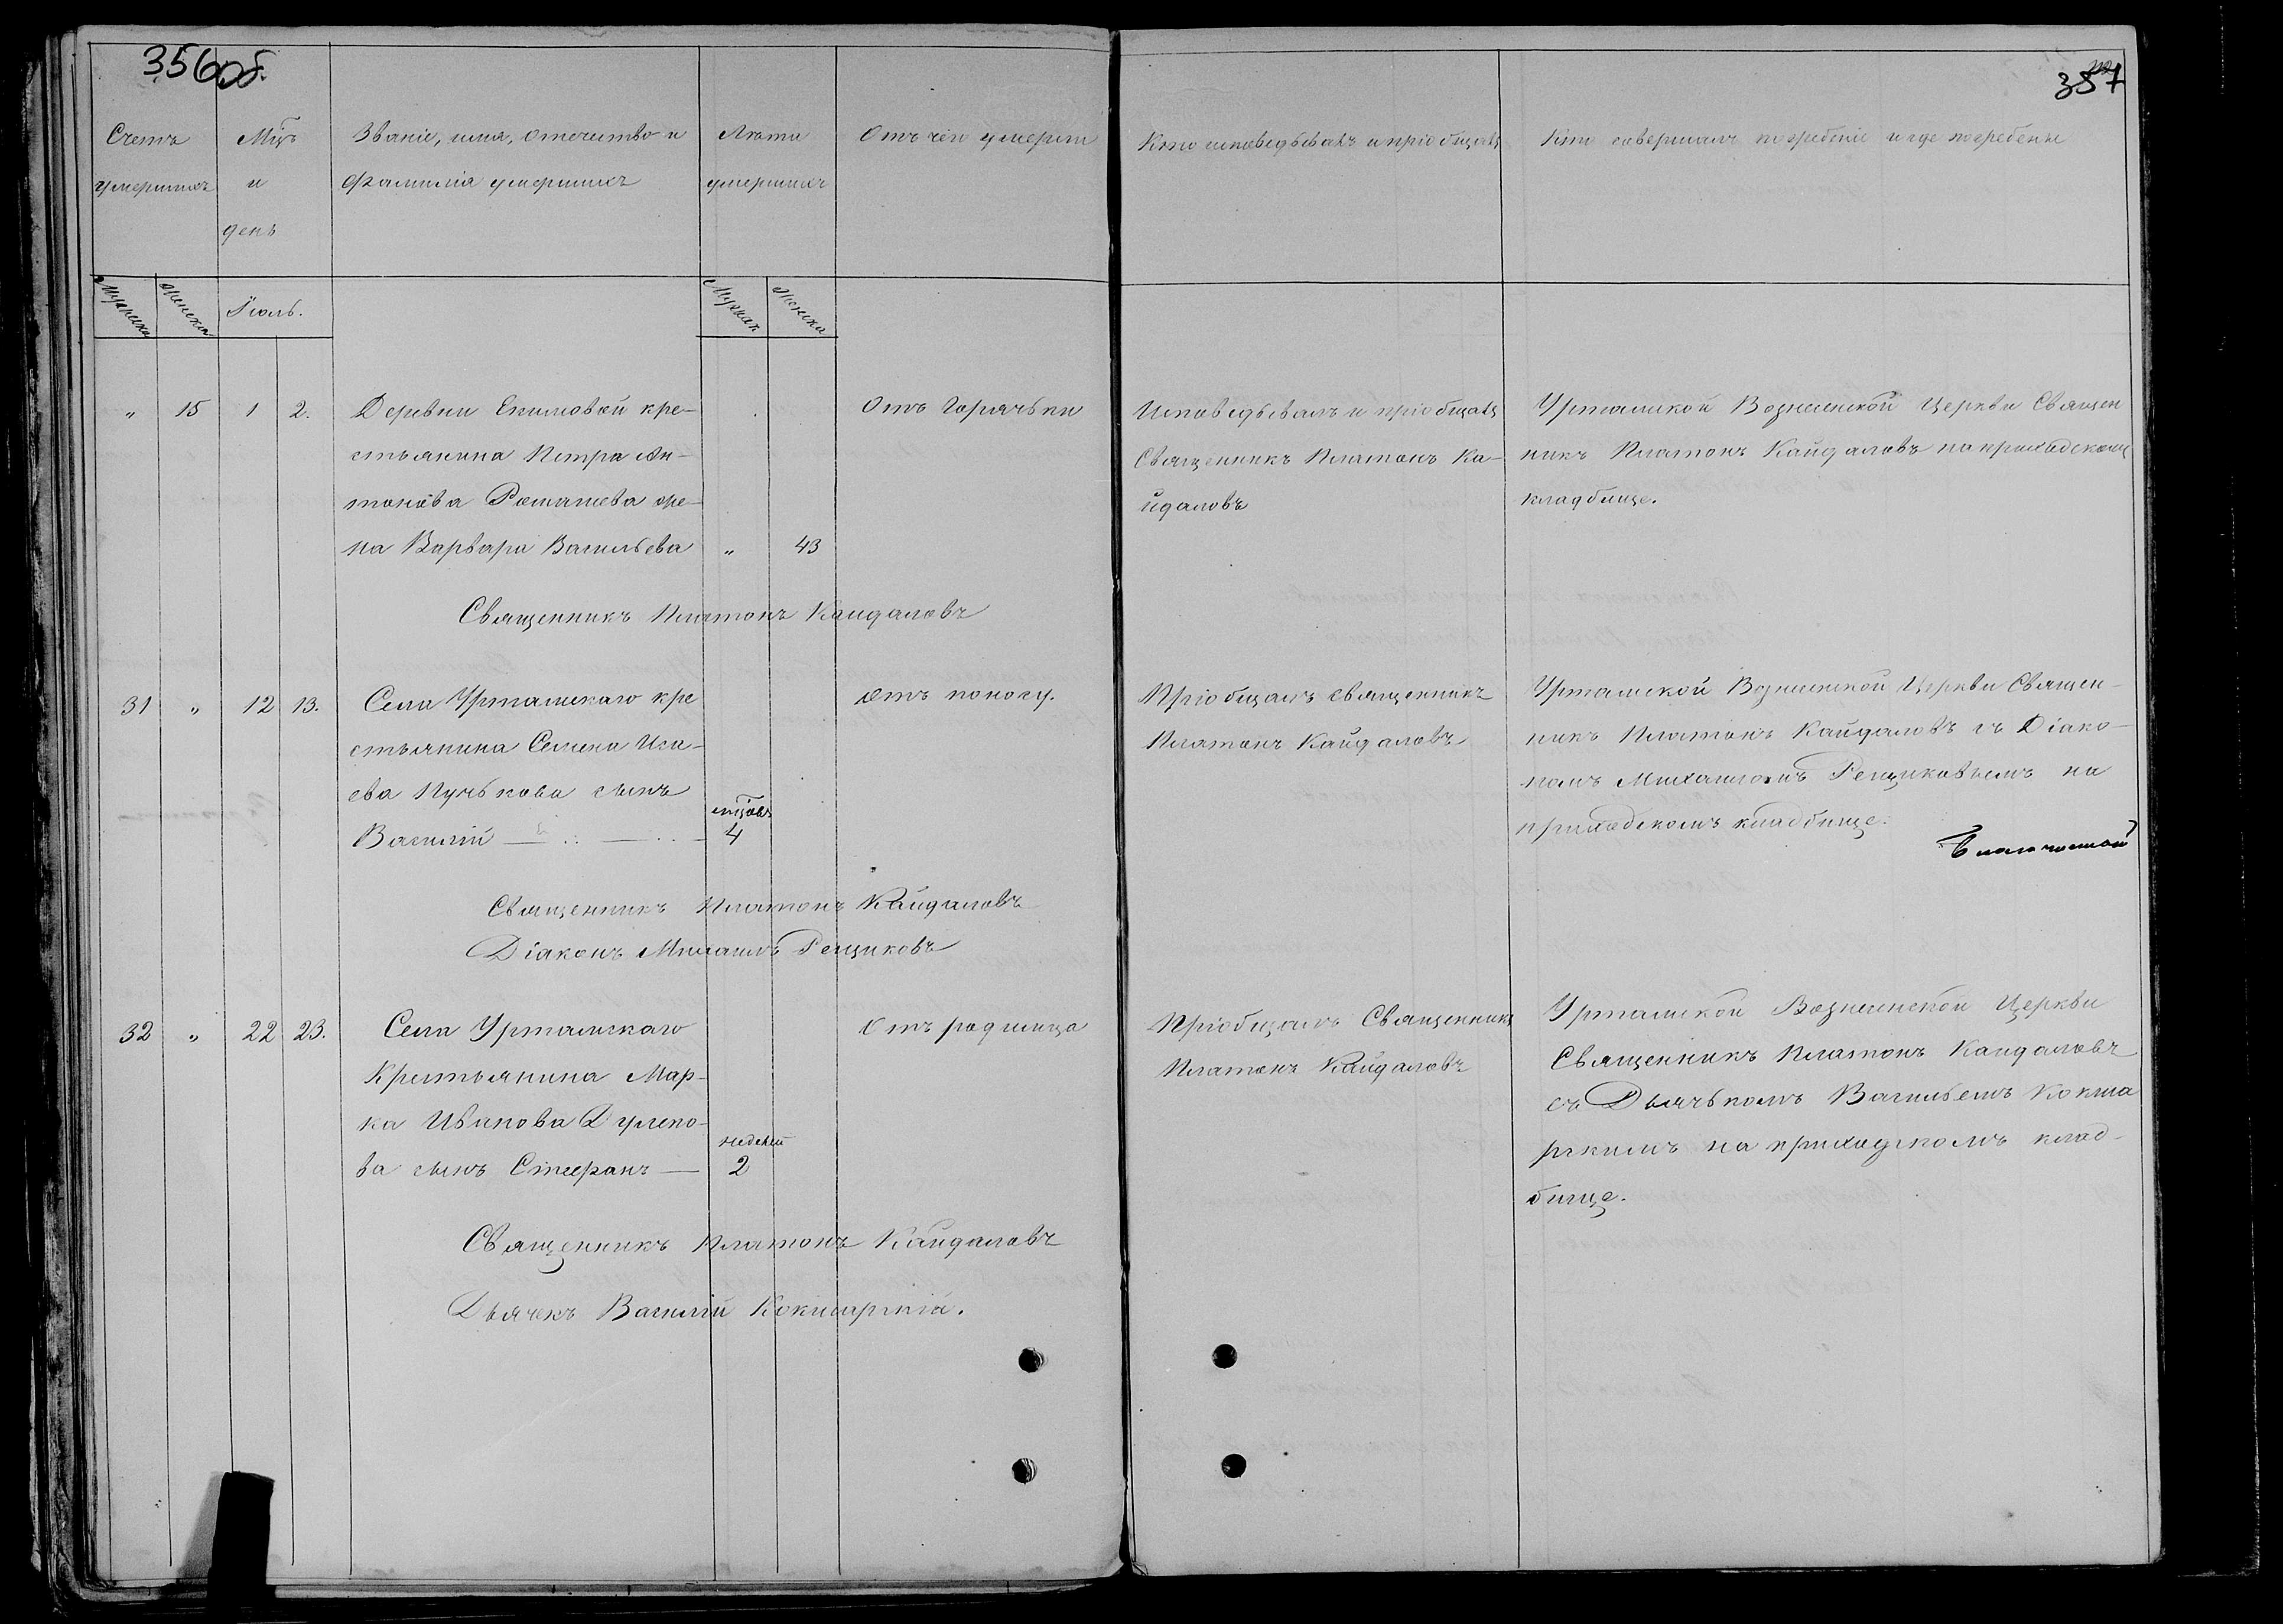 356 об.
357
Счетъ умершихъ
Мцъ и день
Званіе, имя, отечество и
фамилія умершихъ
Лѣта умершихъ
Отъ чего умерли
Кто исповѣдывалъ и пріобщалъ
Кто совершалъ погребеніе и где погребены
Мужска
Женска
Іюль.
Мужска
Женска
" 15 1 2.
Деревни Екимовой кре-
стьянина Петра Ан-
тонова Ромашева же-
на Варвара Васильева " 43
Отъ Горячьки
Исповѣдывалъ и пріобщалъ
Священникъ Платонъ Ка-
йдаловъ
Уртамской Вознесенской Церкви Священ
никъ Платонъ Кайдаловъ на приходскомъ
кладбище.
Священникъ Платонъ Кайдаловъ
31 " 12 13.
Села Уртамскаго кре
стьянина Семена Иса-
ева Пучькова сынъ
Василій мцовъ 4
отъ поносу.
Пріобщалъ священникъ
Платонъ Кайдаловъ
Уртамской Вознесенской Церкви Священ-
никъ Платонъ Кайдаловъ съ Діако-
номъ Михаиломъ Рещиковымъ на
приходскомъ кладбище.
Священникъ Платонъ Кайдаловъ
Діаконъ Михаилъ Рещиковъ
32 " 22 23.
Села Уртамскаго
Крестьянина Мар-
ка Иванова Дулепо-
ва сынъ Стефанъ недѣли 2
Отъ родимца
Пріобщалъ Священникъ
Платонъ Кайдаловъ
Уртамской Вознесенской Церкви
Священникъ Платонъ Кайдаловъ
съ Дьячькомъ Васильемъ Кокша
рскимъ на приходскомъ клад-
бище.
Священникъ Платонъ Кайдаловъ
Дьячекъ Василій Кокшарскій.